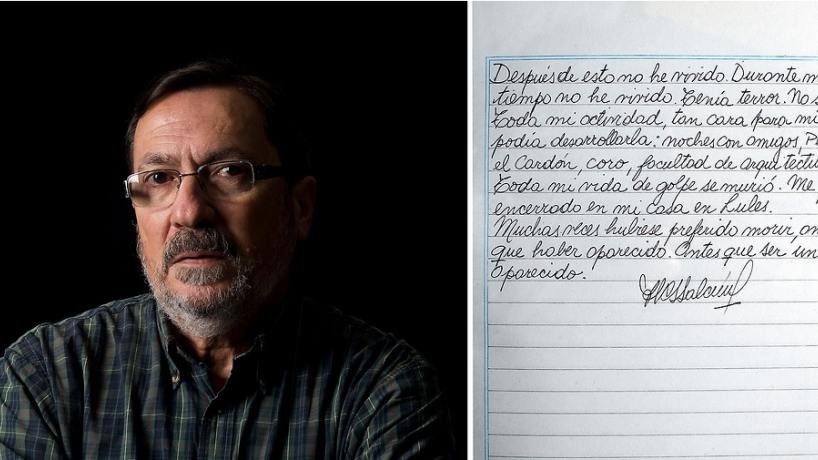 Después de esto no he vivido. Durante m
tiempo no he vivido. Tenía terror. No s
Toda mi actividad, tan cara para mi
podía desarrollarla: noches con amigos, P
el Cardón, coro, facultad de arquitectu
Toda mi vida de golpe se murió. Me
encerrado en mi casa en Lules.
Muchas veces hubiese preferido morir, an
que haber aparecido. Antes que ser un
aparecido.